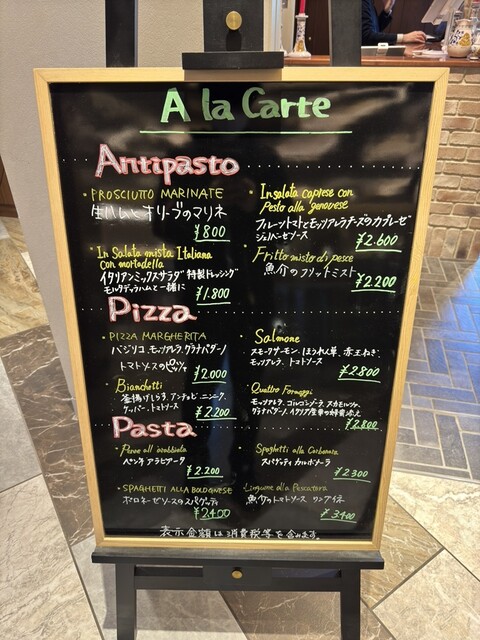 A la Carte
Antipasto
・PROSCIUTTO MARINATE
生ハムとオリーブのマリネ
¥800
・Insalata caprese con
Pesto alla genovese
フルーツトマトとモッツァレラチーズのカプレーゼ
ジェノベーゼソース
¥2.600
・In Salata mista Italiana
con mortadella
イタリアンミックスサラダ 特製ドレッシング
モルタデッラハムと一緒に
¥1.800
・Fritto misto di pesce
魚介のフリットミスト
¥2.200
Pizza
・PIZZA MARGHERITA
バジリコ、モッツァレラ、グラナパダーノ
トマトソースのピッツァ
¥2000
Salmone
スモークサーモン、ほうれん草、赤玉ねぎ、
モッツァレラ、トマトソース
¥2.800
・Bianchetti
釜揚げしらす、アンチョビ、ニンニク、
ケッパー、トマトソース
¥2.200
・Quattro Formaggi
モッツァレラ、ゴルゴンゾーラ、スカモルツァ、
グラナパダーノ、イタリア産
¥2.800
Pasta
・Penne all'arrabbiata
ペンネ アラビアータ
¥2.200
・Spaghetti alla Carbonara
スパゲッティ カルボナーラ
¥2300
・SPAGHETTI ALLA BOLOGNESE
ボロネーゼソースのスパゲッティ
¥2400
・Linguine alla Pescatora
魚介のトマトソース リングイネ
¥3400
表示金額は消費税等を含みます。